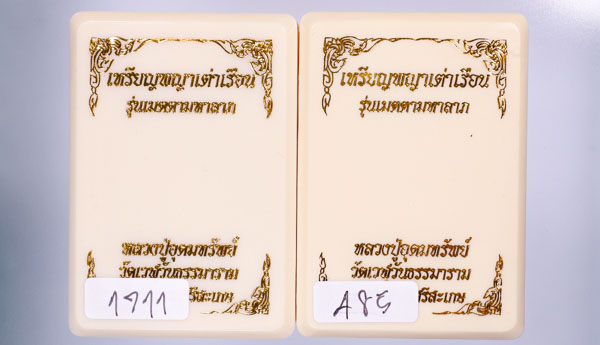 เหรียญพญาเต่าเรือน
รุ่นเมตตามหาลาภ
หลวงปู่อุดมทรัพย์
วัดเวฬุวันธรรมาราม
ศรีสะเกษ
1911
เหรียญพญาเต่าเรือน
รุ่นเมตตามหาลาภ
หลวงปู่อุดมทรัพย์
วัดเวฬุวันธรรมาราม
ศรีสะเกษ